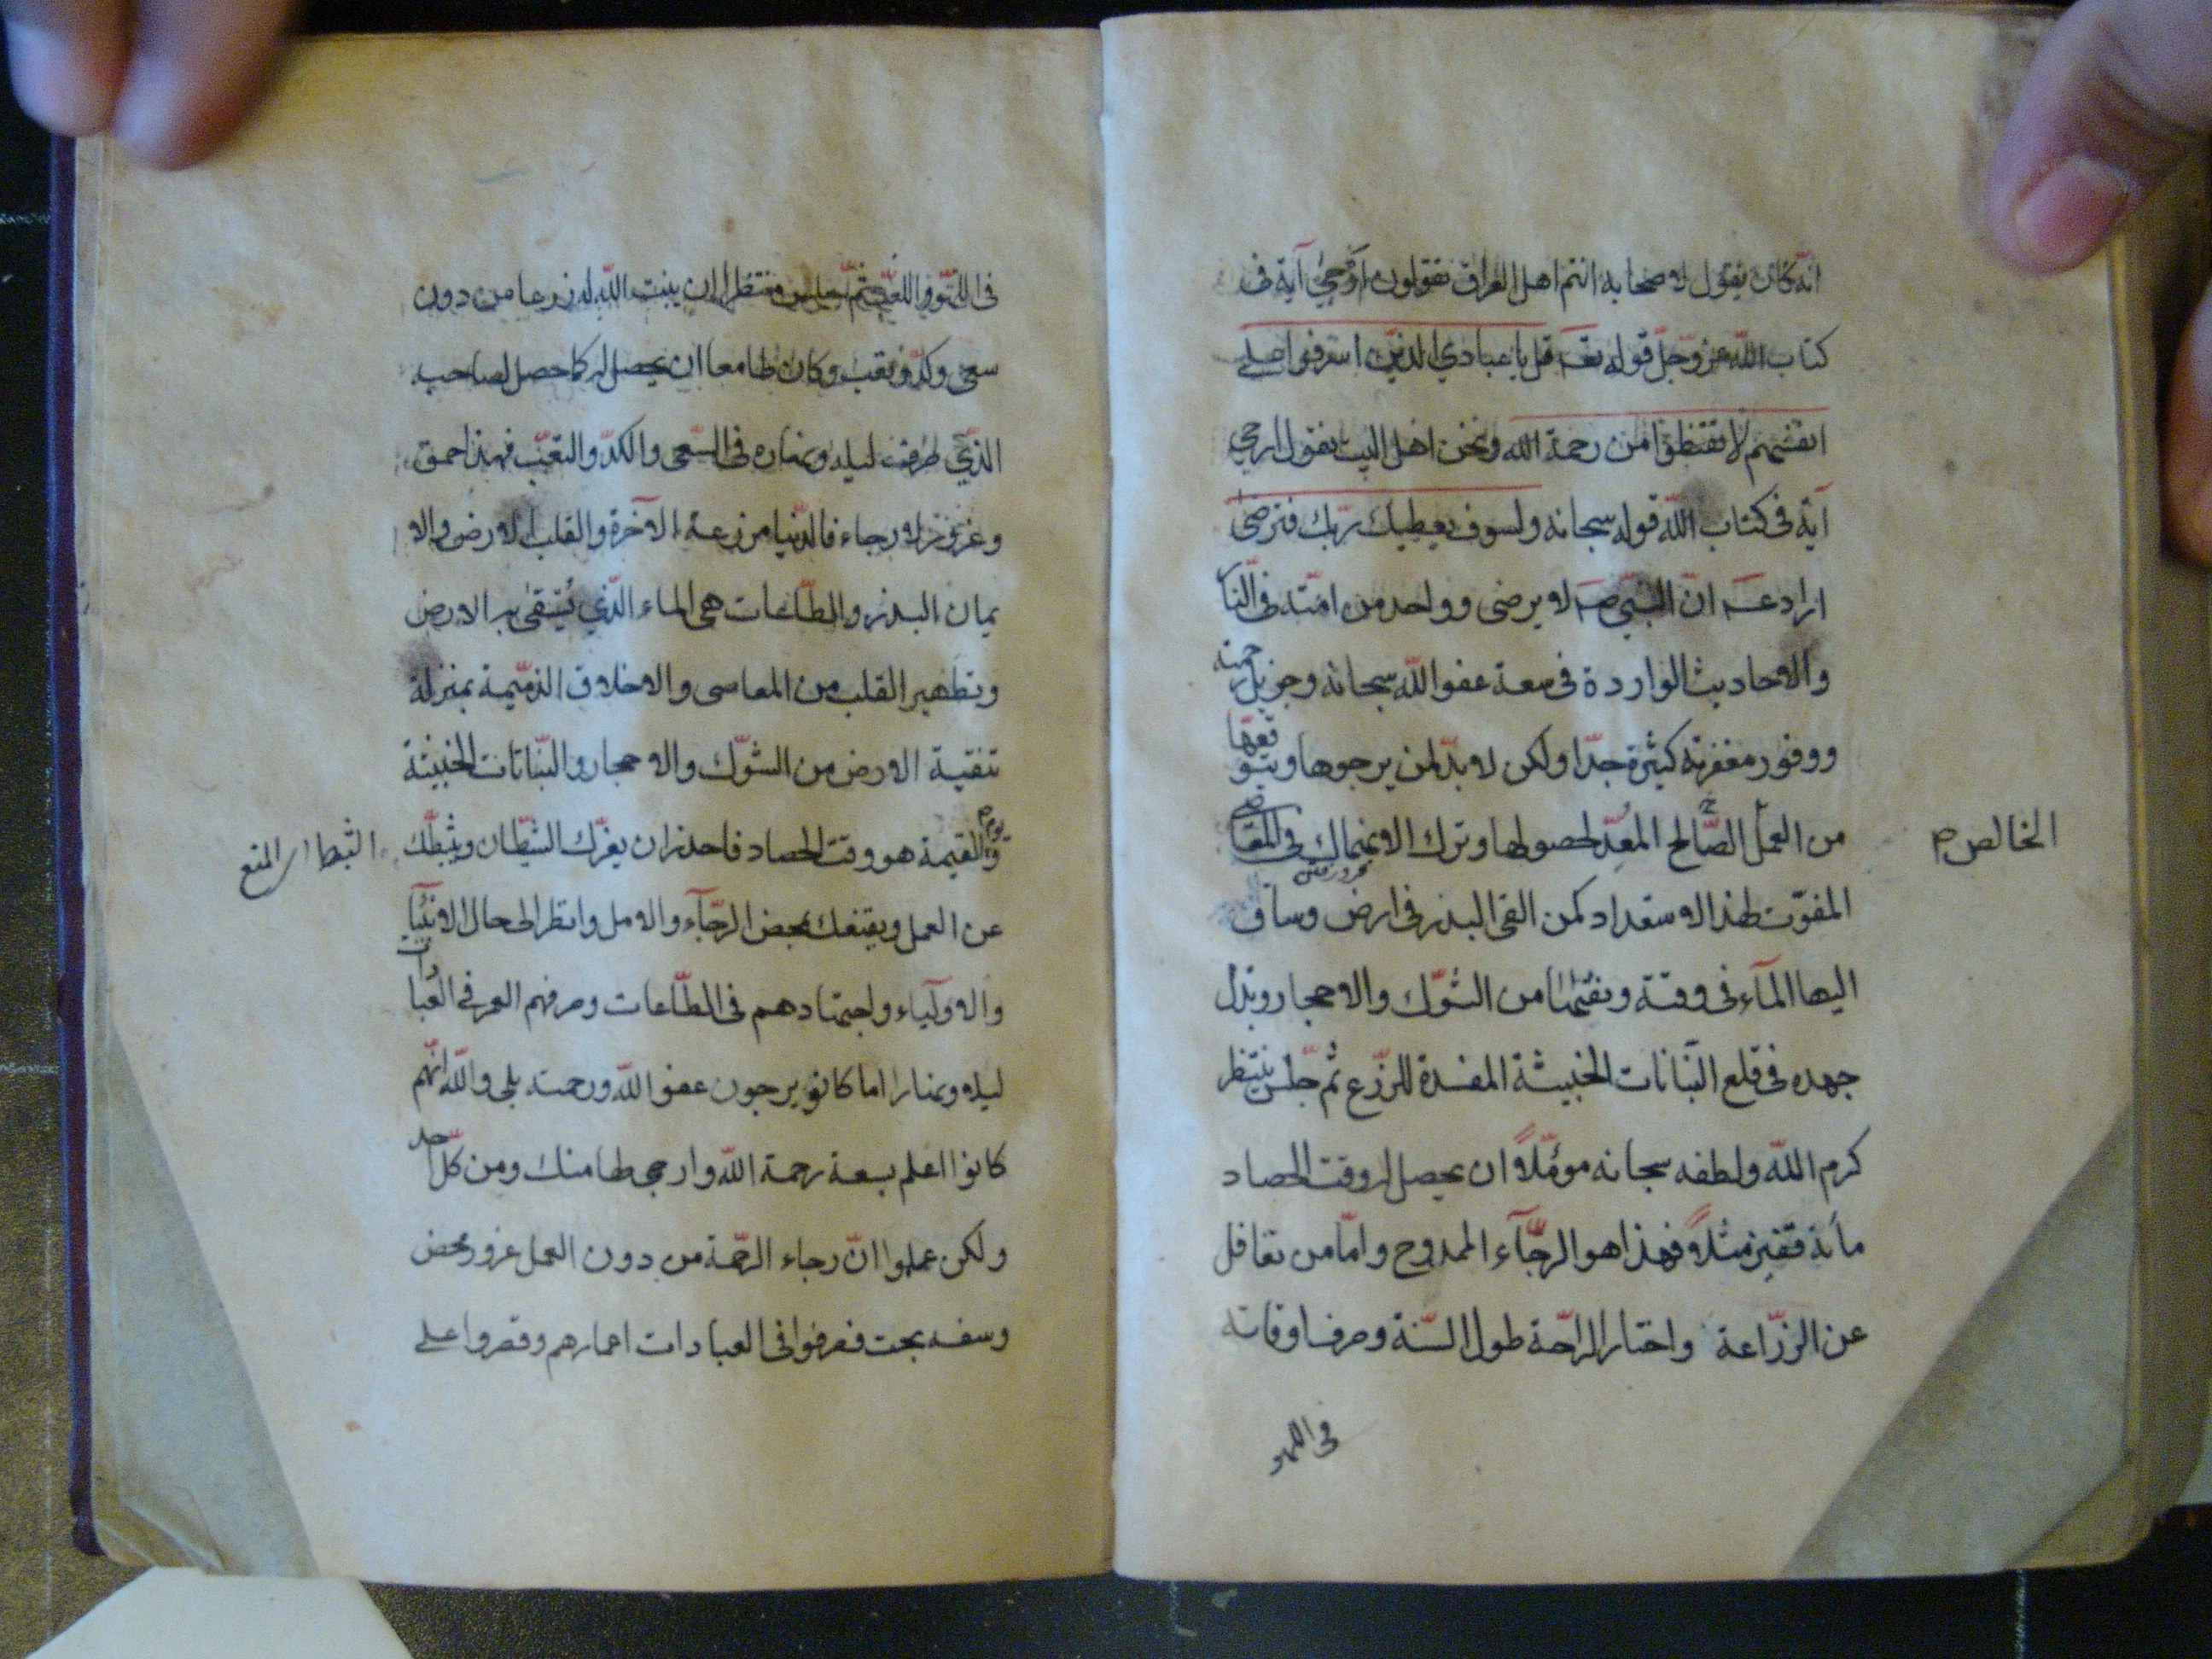 انه كان يقول لاصحابه انتم اهل العراق تقولون ارجى آية فى
كتاب الله عز وجل قوله تعـ قل يا عبادي الذين اسرفوا على
انفسهم لا تقنطوا من رحمة الله ونحن اهل البيت نقول ارجى
آية فى كتاب الله قوله سبحانه ولسوف يعطيك ربك فترضى
اراد عـ ان النبى صـ لا يرضى وواحد من امته فى النار
والاحاديث الواردة فى سعة عفو الله سبحانه وجزيل رحمته
ووفور مغفرته كثيرة جدّا ولكن لا بدّ لمن يرجوها ويتوقعها
من العمل الصّالح المُعدّ لحصولها وترك الانهماك فى المعاصى
الخالص
المفوّت لهذا الاستعداد كمن القى البذر فى ارض وساق
اليها المآء فى وقته ونقّاها من الشّوك والاحجار وبذل
جهده فى قلع النّباتات الخبيثة المفسدة للزّرع ثم جلس ينتظر
كرم الله ولطفه سبحانه مؤمّلاً ان يحصل له وقت الحصاد
مأئة قفيز مثلاً فهذا هو الرّجآء الممدوح وامّا من تغافل
عن الزّراعة واختار الرّاحة طول السّنة وصرف اوقاته
فى اللهو
فى اللهو واللعب ثمّ جلس منتظرا ان ينبت الله له زرعا من دون
سعى وكدّ وتعب وكان طامعا ان يحصل له كما حصل لصاحبه
الذّي صرف ليله ونهاره فى السّعى والكدّ والتعب فهذا حمق
وغرور لا رجاء فالدّنيا مزرعة الآخرة والقلب الارض والا
يمان البذر والطّاعات هى الماء الذّي يُسقى به الارض
وتطهير القلب من المعاصى والاخلاق الذميّمة بمنزلة
تنقية الارض من الشّوك والاحجار والنّباتات الخبيثة
ويوم القيمة هو وقت الحصاد فاحذر ان يغرّك الشيّطان ويثبّطك
الثبط اى المنع
عن العمل ويقنعك بمحض الرّجآء والامل وانظر الى حال الانبيآء
والاوليآء واجتهادهم فى الطّاعات وصرفهم العمر فى العبادات
ليلا ونهارا اما كانوا يرجون عفو الله ورحمته بلى والله انّهم
كانوا اعلم بسعة رحمة الله وارجى لها منك ومن كلّ احد
ولكن علموا انّ رجاء الرحّمة من دون العمل غرور محض
وسفه بحت فصرفوا فى العبادات اعمارهم وقصروا على